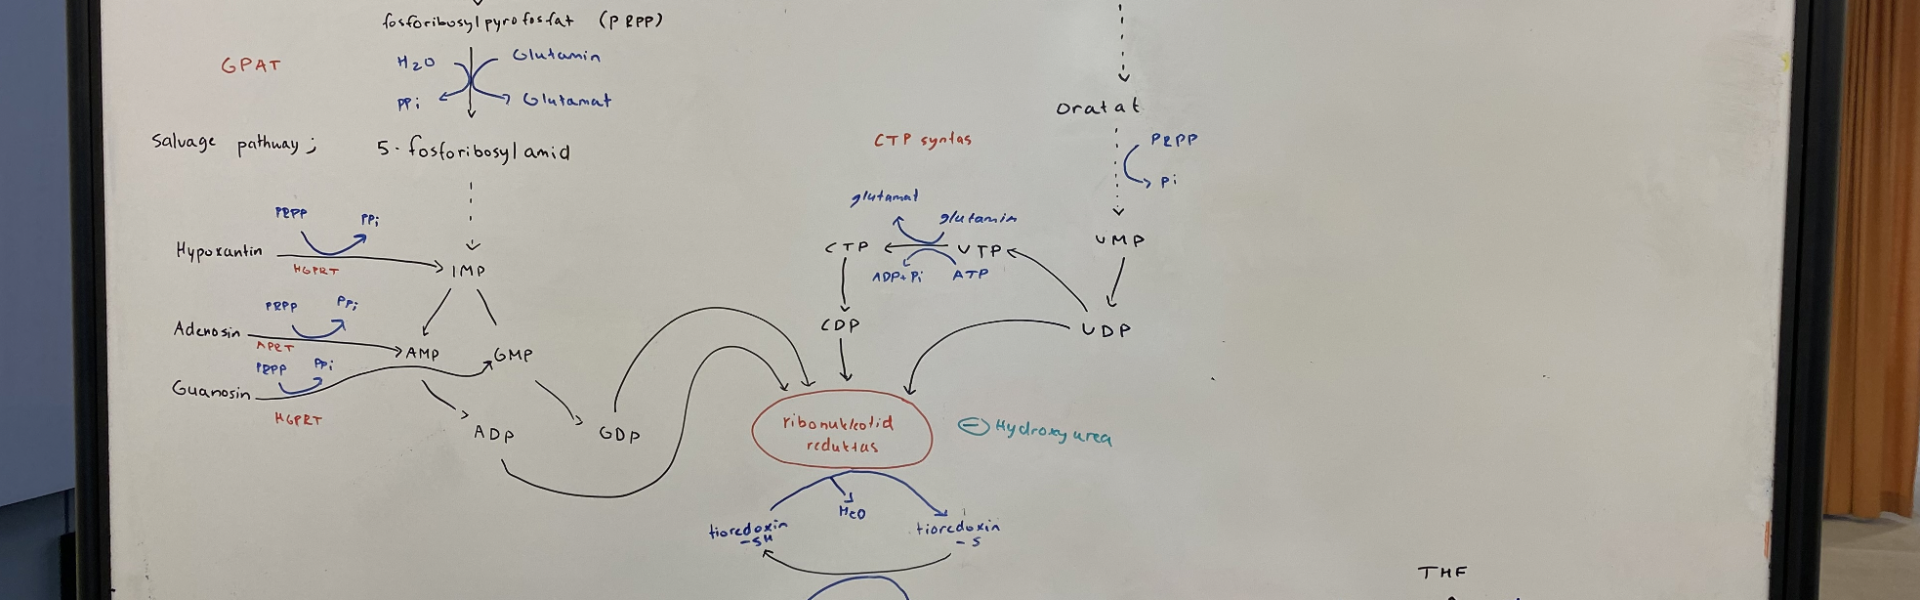 fosforibosylpyrofosfat (PRPP)
GPAT
H2O
Glutamin
PPi
Glutamat
Salvage pathway;
5-fosforibosylamid
PRPP
PPi
Hypoxantin
HGPRT
IMP
PRPP
PPi
Adenosin
APRT
AMP
GMP
PRPP
PPi
Guanosin
HGPRT
ADP
GDP
Oratat
PRPP
Pi
CTP syntas
glutamat
glutamin
CTP
UTP
UMP
ADP+Pi
ATP
CDP
UDP
ribonukleotid
reduktas
⊖ Hydroxyurea
H2O
tioredoxin
-SH
tioredoxin
-S
THF